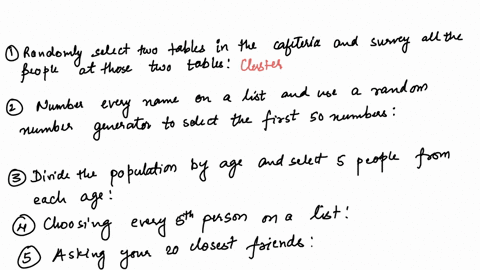 ① Randomly select two tables in the cafeteria and survey all the
people at those two tables: Cluster
② Number every name on a list and use a random
number generator to select the first 50 numbers:
③ Divide the population by age and select 5 people from
each age:
④ Choosing every 5th person on a list:
⑤ Asking your 20 closest friends: